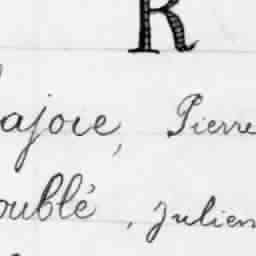 R
ajoie, Pierre
oublé, Julien